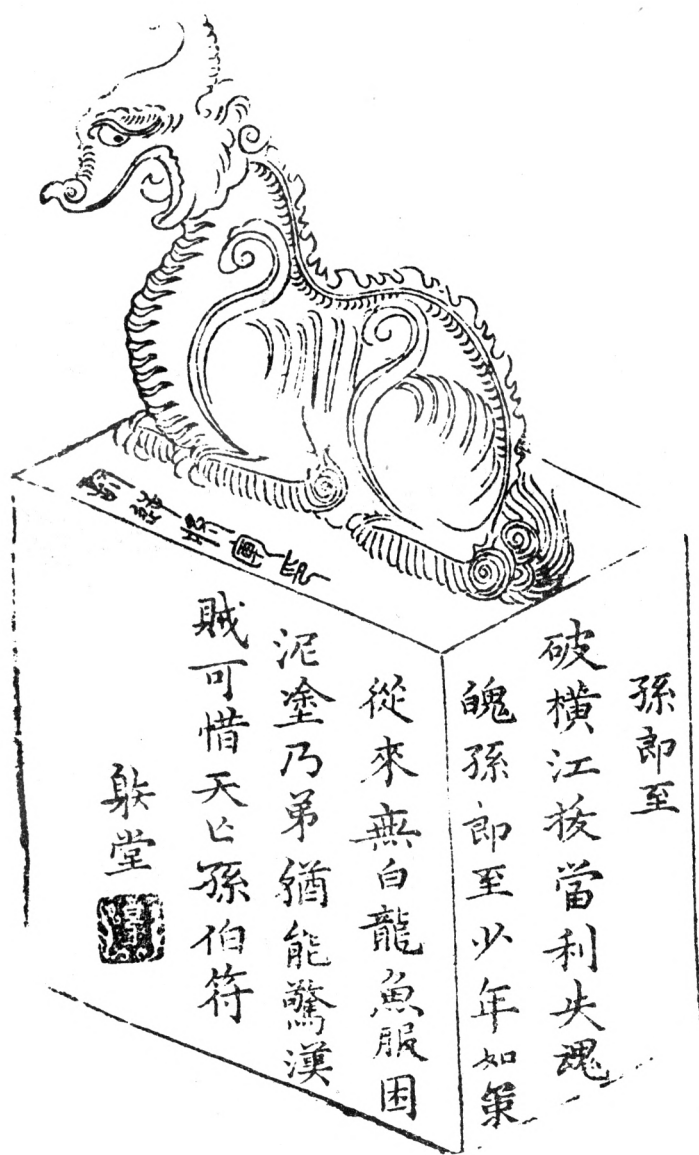 孫郎至
破橫江拔當利失魂
魄孫郎至少年如策
從來無白龍魚服困
泥塗乃弟猶能驚漢
賊可惜天亡孫伯符
䠶堂